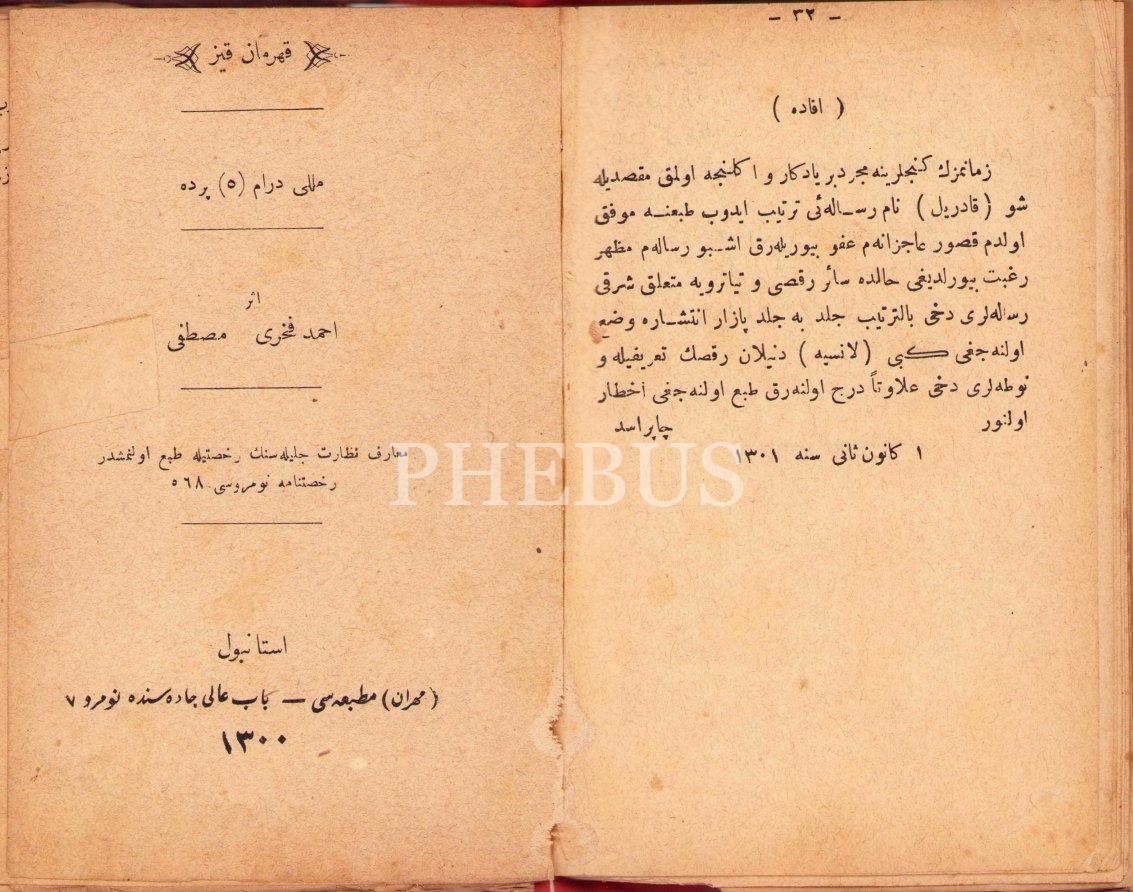 - ٣٢ -
( افاده )
زمانمزك كنجلرينه مجرد بر يادكار و اكلنجه اولمق مقصديله
شو ( قادريل ) نام رساله‌ئی ترتيب ايدوب طبعنه موفق
اولدم قصور عاجزانه‌م عفو بيوريله‌رق اشبو رساله‌م مظهر
رغبت بيورلديغی حالده سائر رقصی و تياترويه متعلق شرقی
رساله‌لری دخی بالترتيب جلد به جلد پازار انتشاره وضع
اولنه‌جغی كبی ( لانسيه ) دنيلان رقصك تعريفيله و
نوطه‌لری دخی علاوتاً درج اولنه‌رق طبع اولنه‌جغی اخطار
اولنور چاپراسد
١ كانون ثانی سنه ١٣٠١
قهرمان قيز
مللی درام (٥) پرده
اثر
احمد فخری مصطفی
معارف نظارت جليله‌سنك رخصتيله طبع اولنمشدر
رخصتنامه نومروسی ٥٦٨
استانبول
( مهران ) مطبعه‌سی — باب عالی جاده‌سنده نومرو ٧
١٣٠٠
PHEBUS